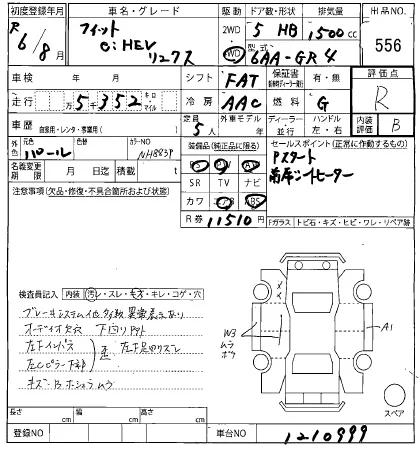 初度登録年月 車名・グレード 駆動 ドア数・形状 排気量 出品NO.
R 6/8月 フィット 2WD 5 HB 1500cc 556
e:HEV 4WD 型式
リュクス 6AA-GR4
車検 年 月 シフト FAT 保証書 有・無 評価点
走行 万5千352 キロ マイル 冷房 AAC 燃料 G R
車歴 自家用・レンタ・事業用( ) 定員 5人 外車モデル年 ディーラー 並行 ハンドル 左・右 内装評価 B
外色 元色 パール カラーNO NH883P 装備品(純正品に限る) セールスポイント(正常に作動するもの)
PS PW AW Pスタート
名義変更期限 月 日迄 積載 t SR TV ナビ 前席シートヒーター
注意事項(欠品・修復・不具合箇所および状態) カワ エアB ABS
R券 11510円 Fガラス トビ石・キズ・ヒビ・ワレ・リペア跡
検査員記入 内装 汚レ・スレ・キズ・キレ・コゲ・穴
ブレーキシステム他多数異常表示あり
オーディオ欠穴 下回り
左Fインパネ
左Cピラー下部 歪 左F足回りズレ
キズ
W3
ムラ
A1
スペア
長さ cm 幅 cm 高さ cm
登録NO 車台NO 1210999